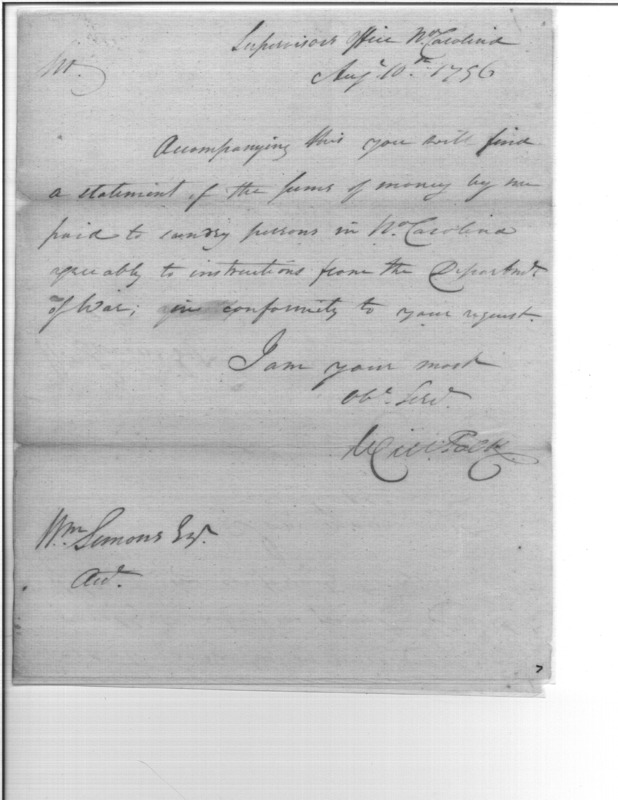 Supervisors Office No. Carolina
Augt. 10th. 1796
Sir.
Accompanying this you will find
a statement of the sums of money by me
paid to sundry persons in No. Carolina
agreeably to instructions from the Departmt.
of War; in conformity to your request.
I am your most
Obt. Servt.
Will. Polk
Wm Simons Esqr.
Acct.
7